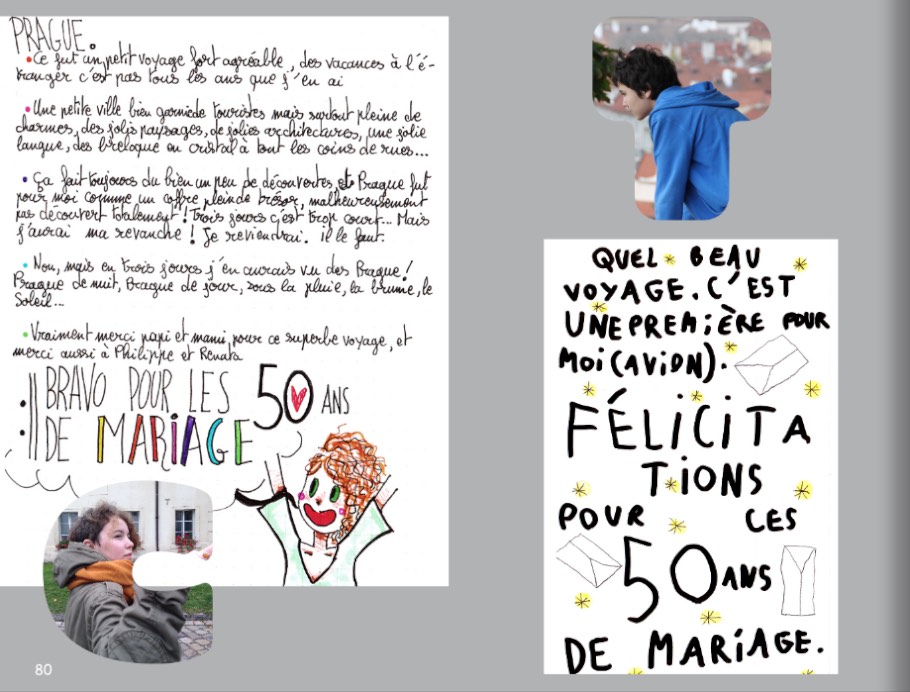 PRAGUE.
• Ce fut un petit voyage fort agréable, des vacances à l'é-
tranger c'est pas tous les ans que j'en ai
• Une petite ville bien garnie de touristes mais surtout pleine de
charmes, des jolis paysages, de jolies architectures, une jolie
langue, des breloques en cristal à tout les coins de rues...
• Ça fait toujours du bien un peu de découvertes, et Prague fut
pour moi comme un coffre plein de trésor, malheureusement
pas découvert totalement ! Trois jours c'est trop court... Mais
j'aurai ma revanche ! Je reviendrai. il le faut.
• Non, mais en trois jours j'en aurais vu des Prague !
Prague de nuit, Prague de jour, sous la pluie, la brume, le
Soleil...
• Vraiment merci papi et mami pour ce superbe voyage, et
merci aussi à Philippe et Renata
BRAVO POUR LES 50 ANS
DE MARiAGE
QUEL BEAU
VOYAGE. C'EST
UNE PREMiÈRE POUR
MOi (AViON).
FÉLiCiTA
TiONS
POUR CES
50 ANS
DE MARiAGE.
80